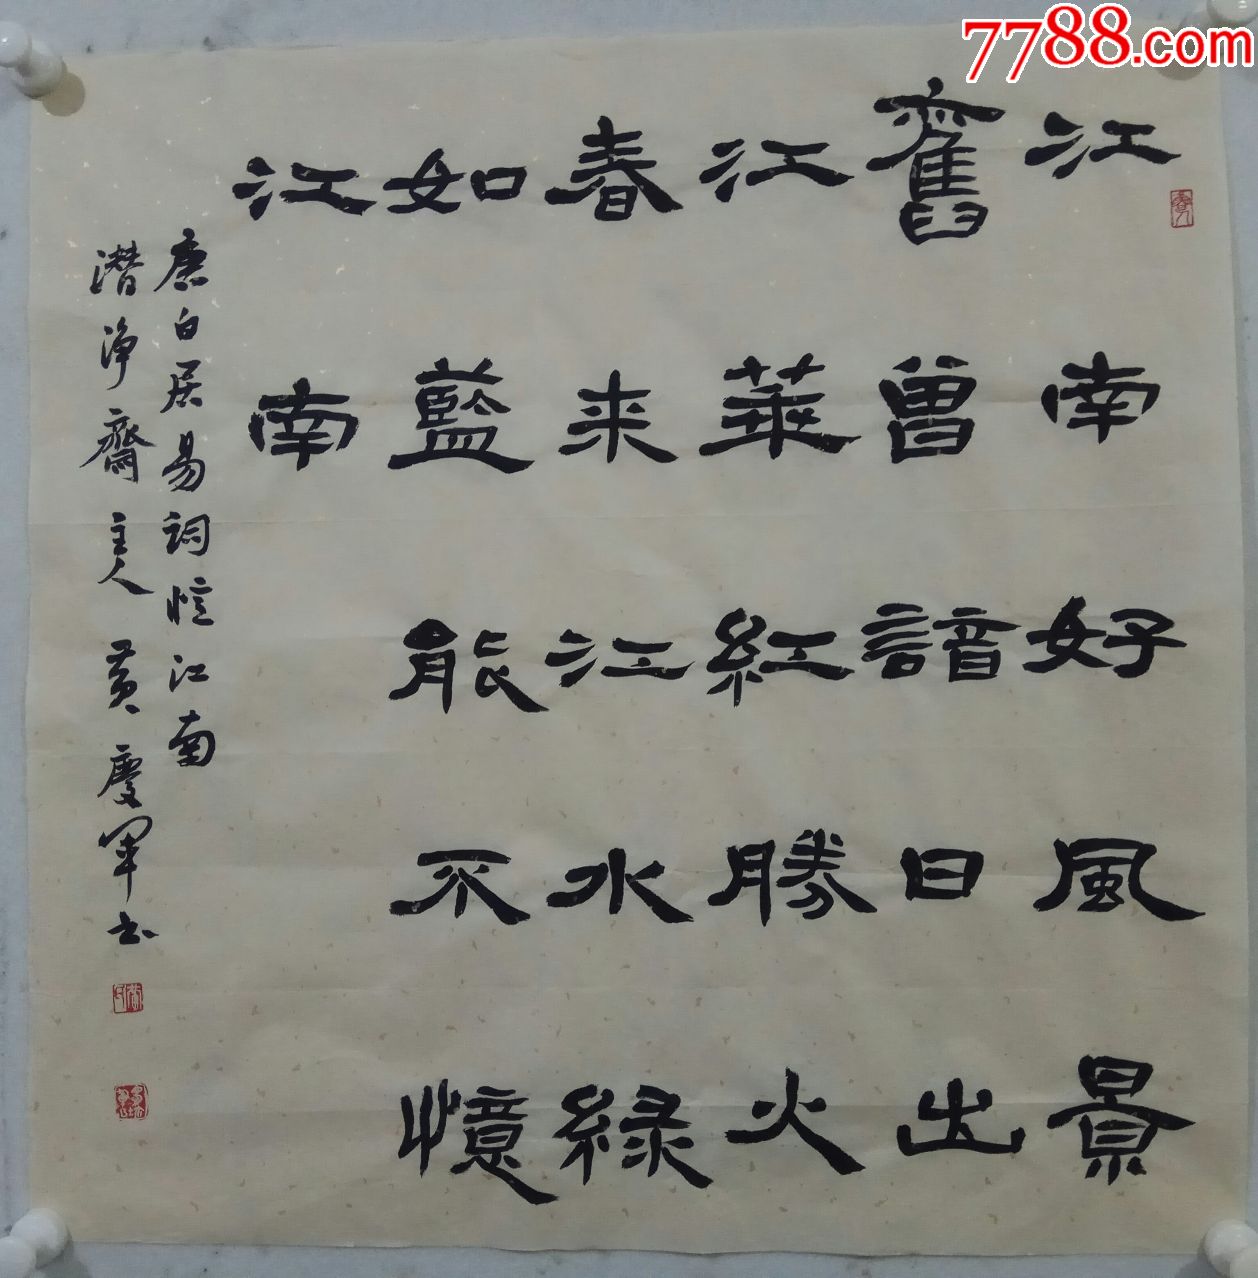 7788.com
江南好風景
舊曾諳日出
江華紅勝火
春来江水緑
如藍能不憶
江南
唐白居易詞憶江南
潛净齋主人黄慶軍书